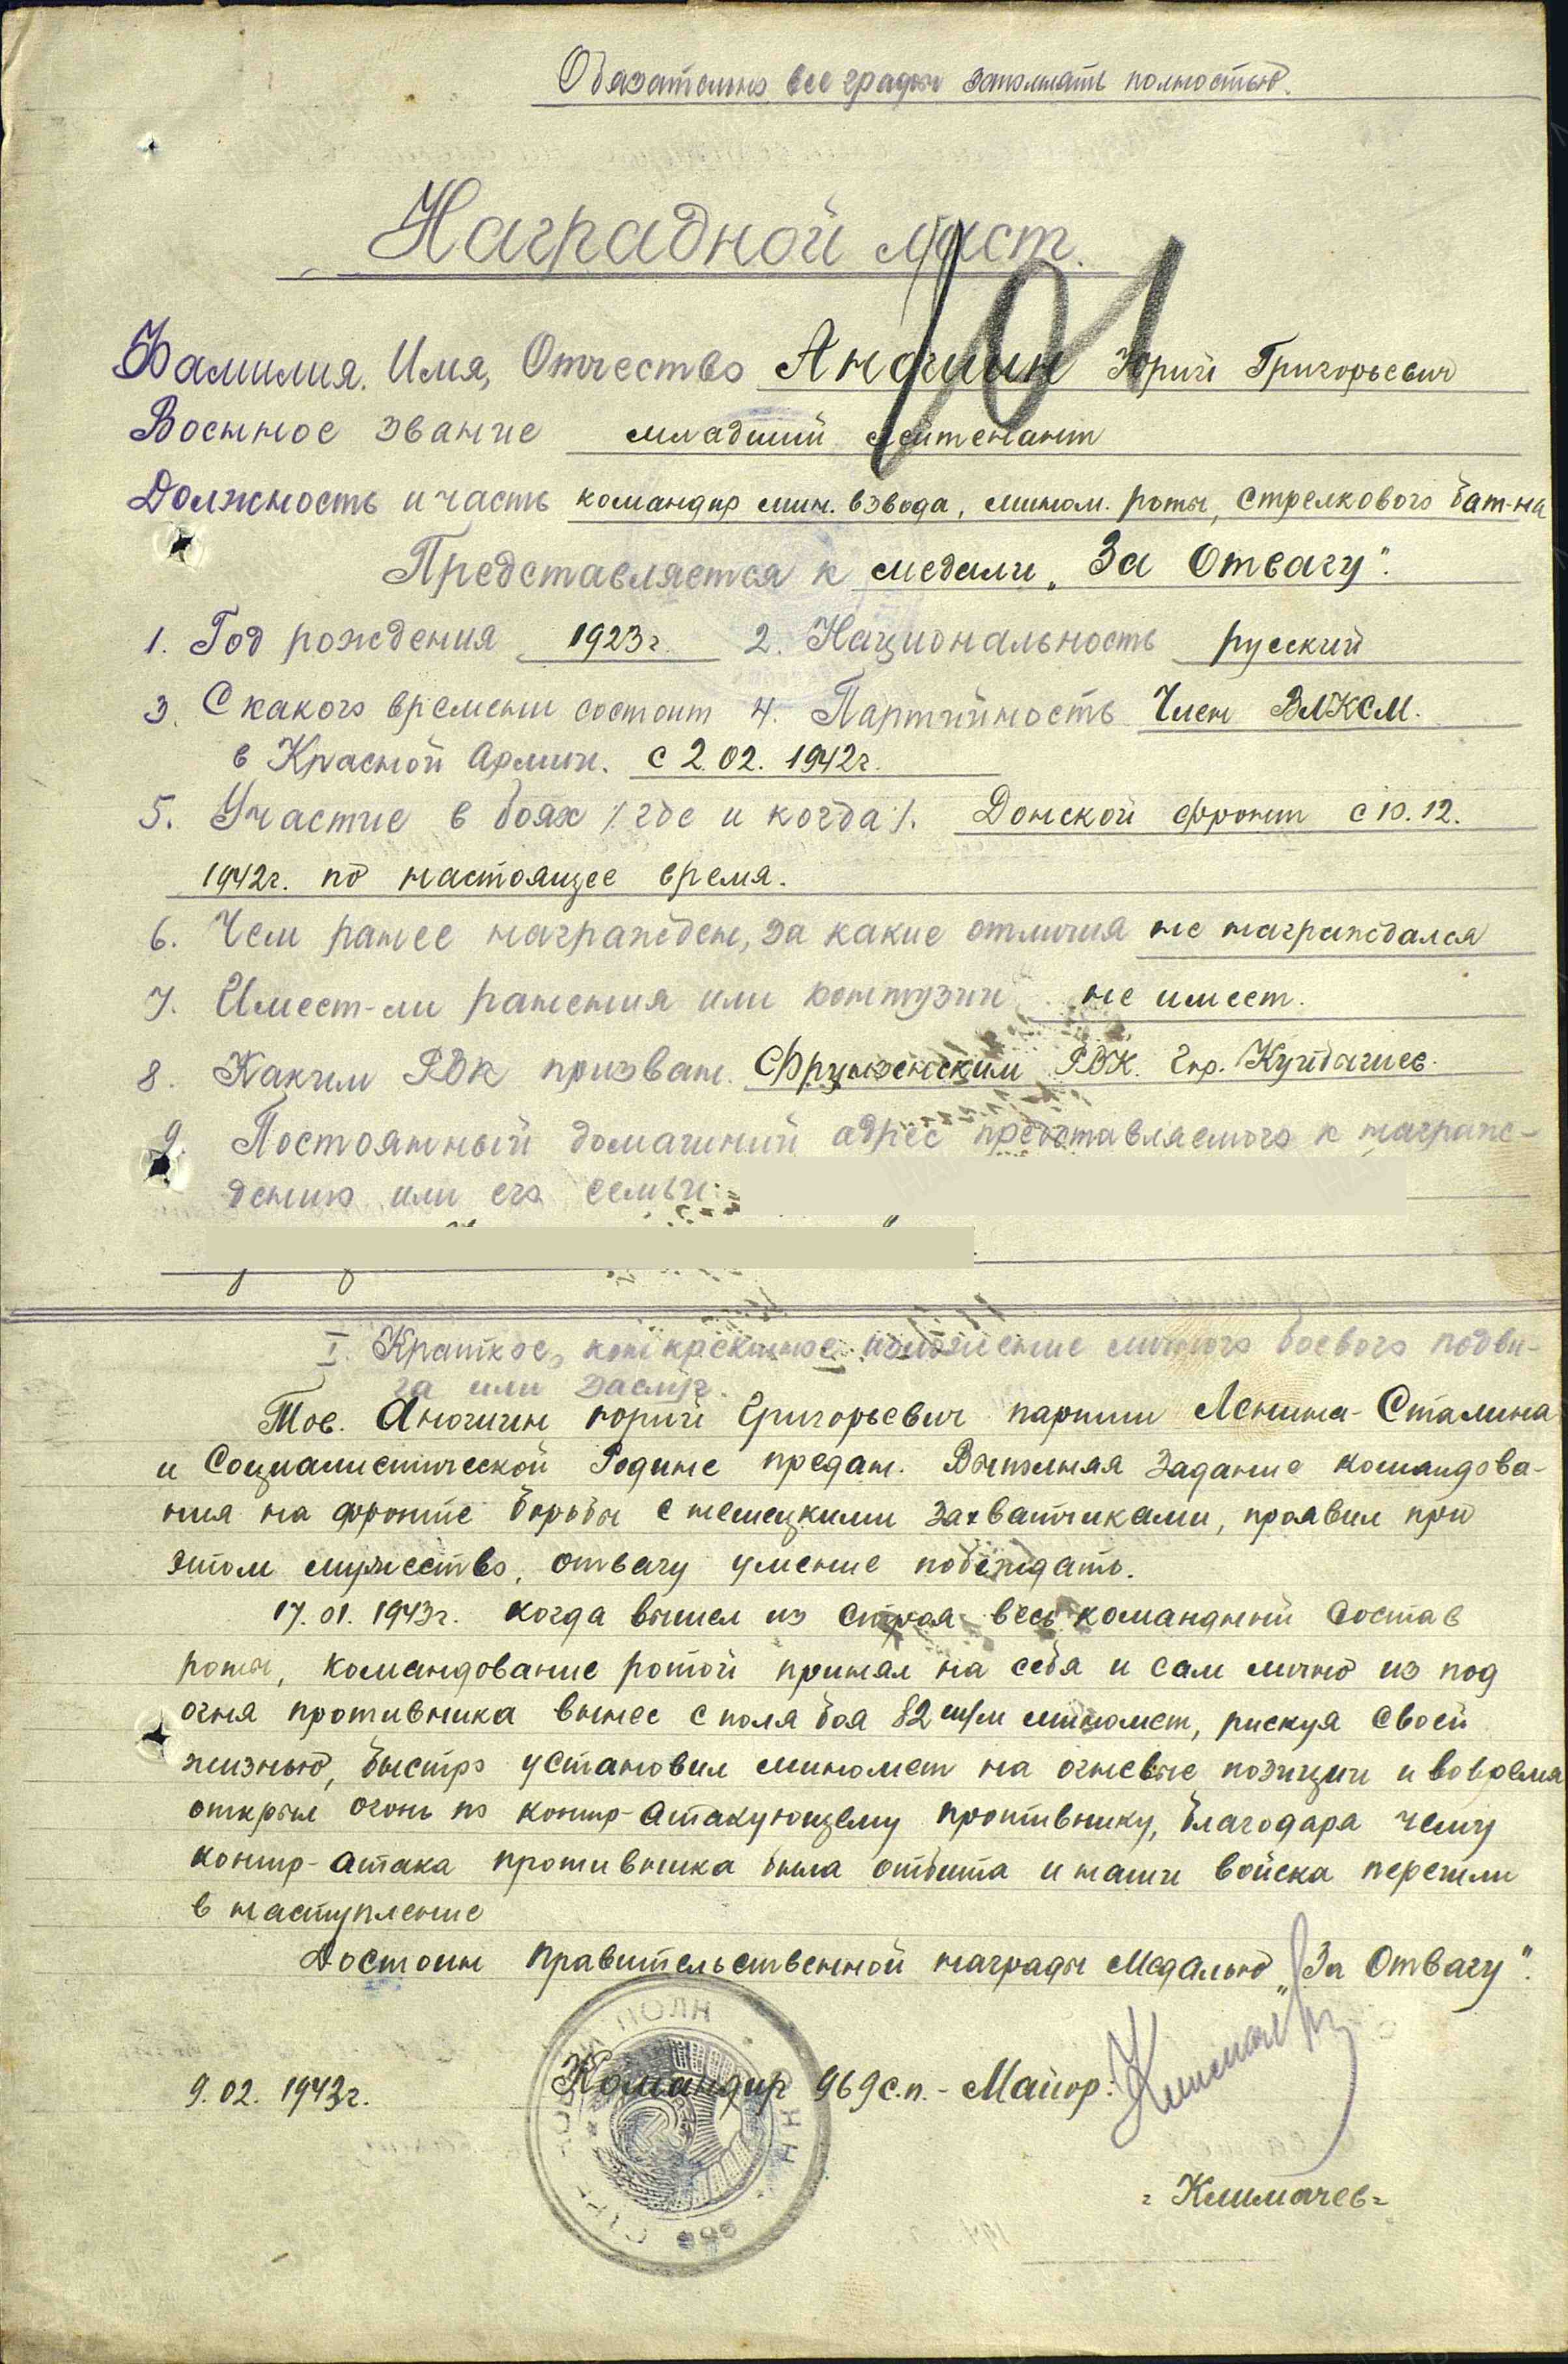 Обязательно все графы заполнять полностью.
Наградной лист.
101
Фамилия, Имя, Отчество Аношин Юрий Григорьевич
Военное звание младший лейтенант
Должность и часть командир мин. взвода, мином. роты, стрелкового бат-на
Представляется к медали „За Отвагу".
1. Год рождения 1923г. 2. Национальность русский
3. С какого времени состоит 4. Партийность Член ВЛКСМ.
в Красной Армии. с 2.02.1942г.
5. Участие в боях /где и когда/. Донской фронт с 10.12.
1942г. по настоящее время.
6. Чем ранее награжден, за какие отличия не награждался
7. Имеет-ли ранения или контузии не имеет.
8. Каким РВК призван. Фрунзенским РВК. гор. Куйбышев.
9. Постоянный домашний адрес представляемого к награж-
дению или его семьи:
I. Краткое, конкретное изложение личного боевого подви-
га или заслуг.
Тов. Аношин Юрий Григорьевич партии Ленина-Сталина
и Социалистической Родине предан. Выполняя задание командова-
ния на фронте борьбы с немецкими захватчиками, проявил при
этом мужество, отвагу умение побеждать.
17.01.1943г. когда вышел из строя весь командный состав
роты, командование ротой принял на себя и сам лично из под
огня противника вынес с поля боя 82 м/м миномет, рискуя своей
жизнью, быстро установил миномет на огневые позиции и вовремя
открыл огонь по контр-атакующему противнику, благодара чему
контр-атака противника была отбита и наши войска перешли
в наступление
Достоин правительственной награды Медалью „За Отвагу".
9.02.1943г. Командир 969 с.п. - Майор:
= Климачев =